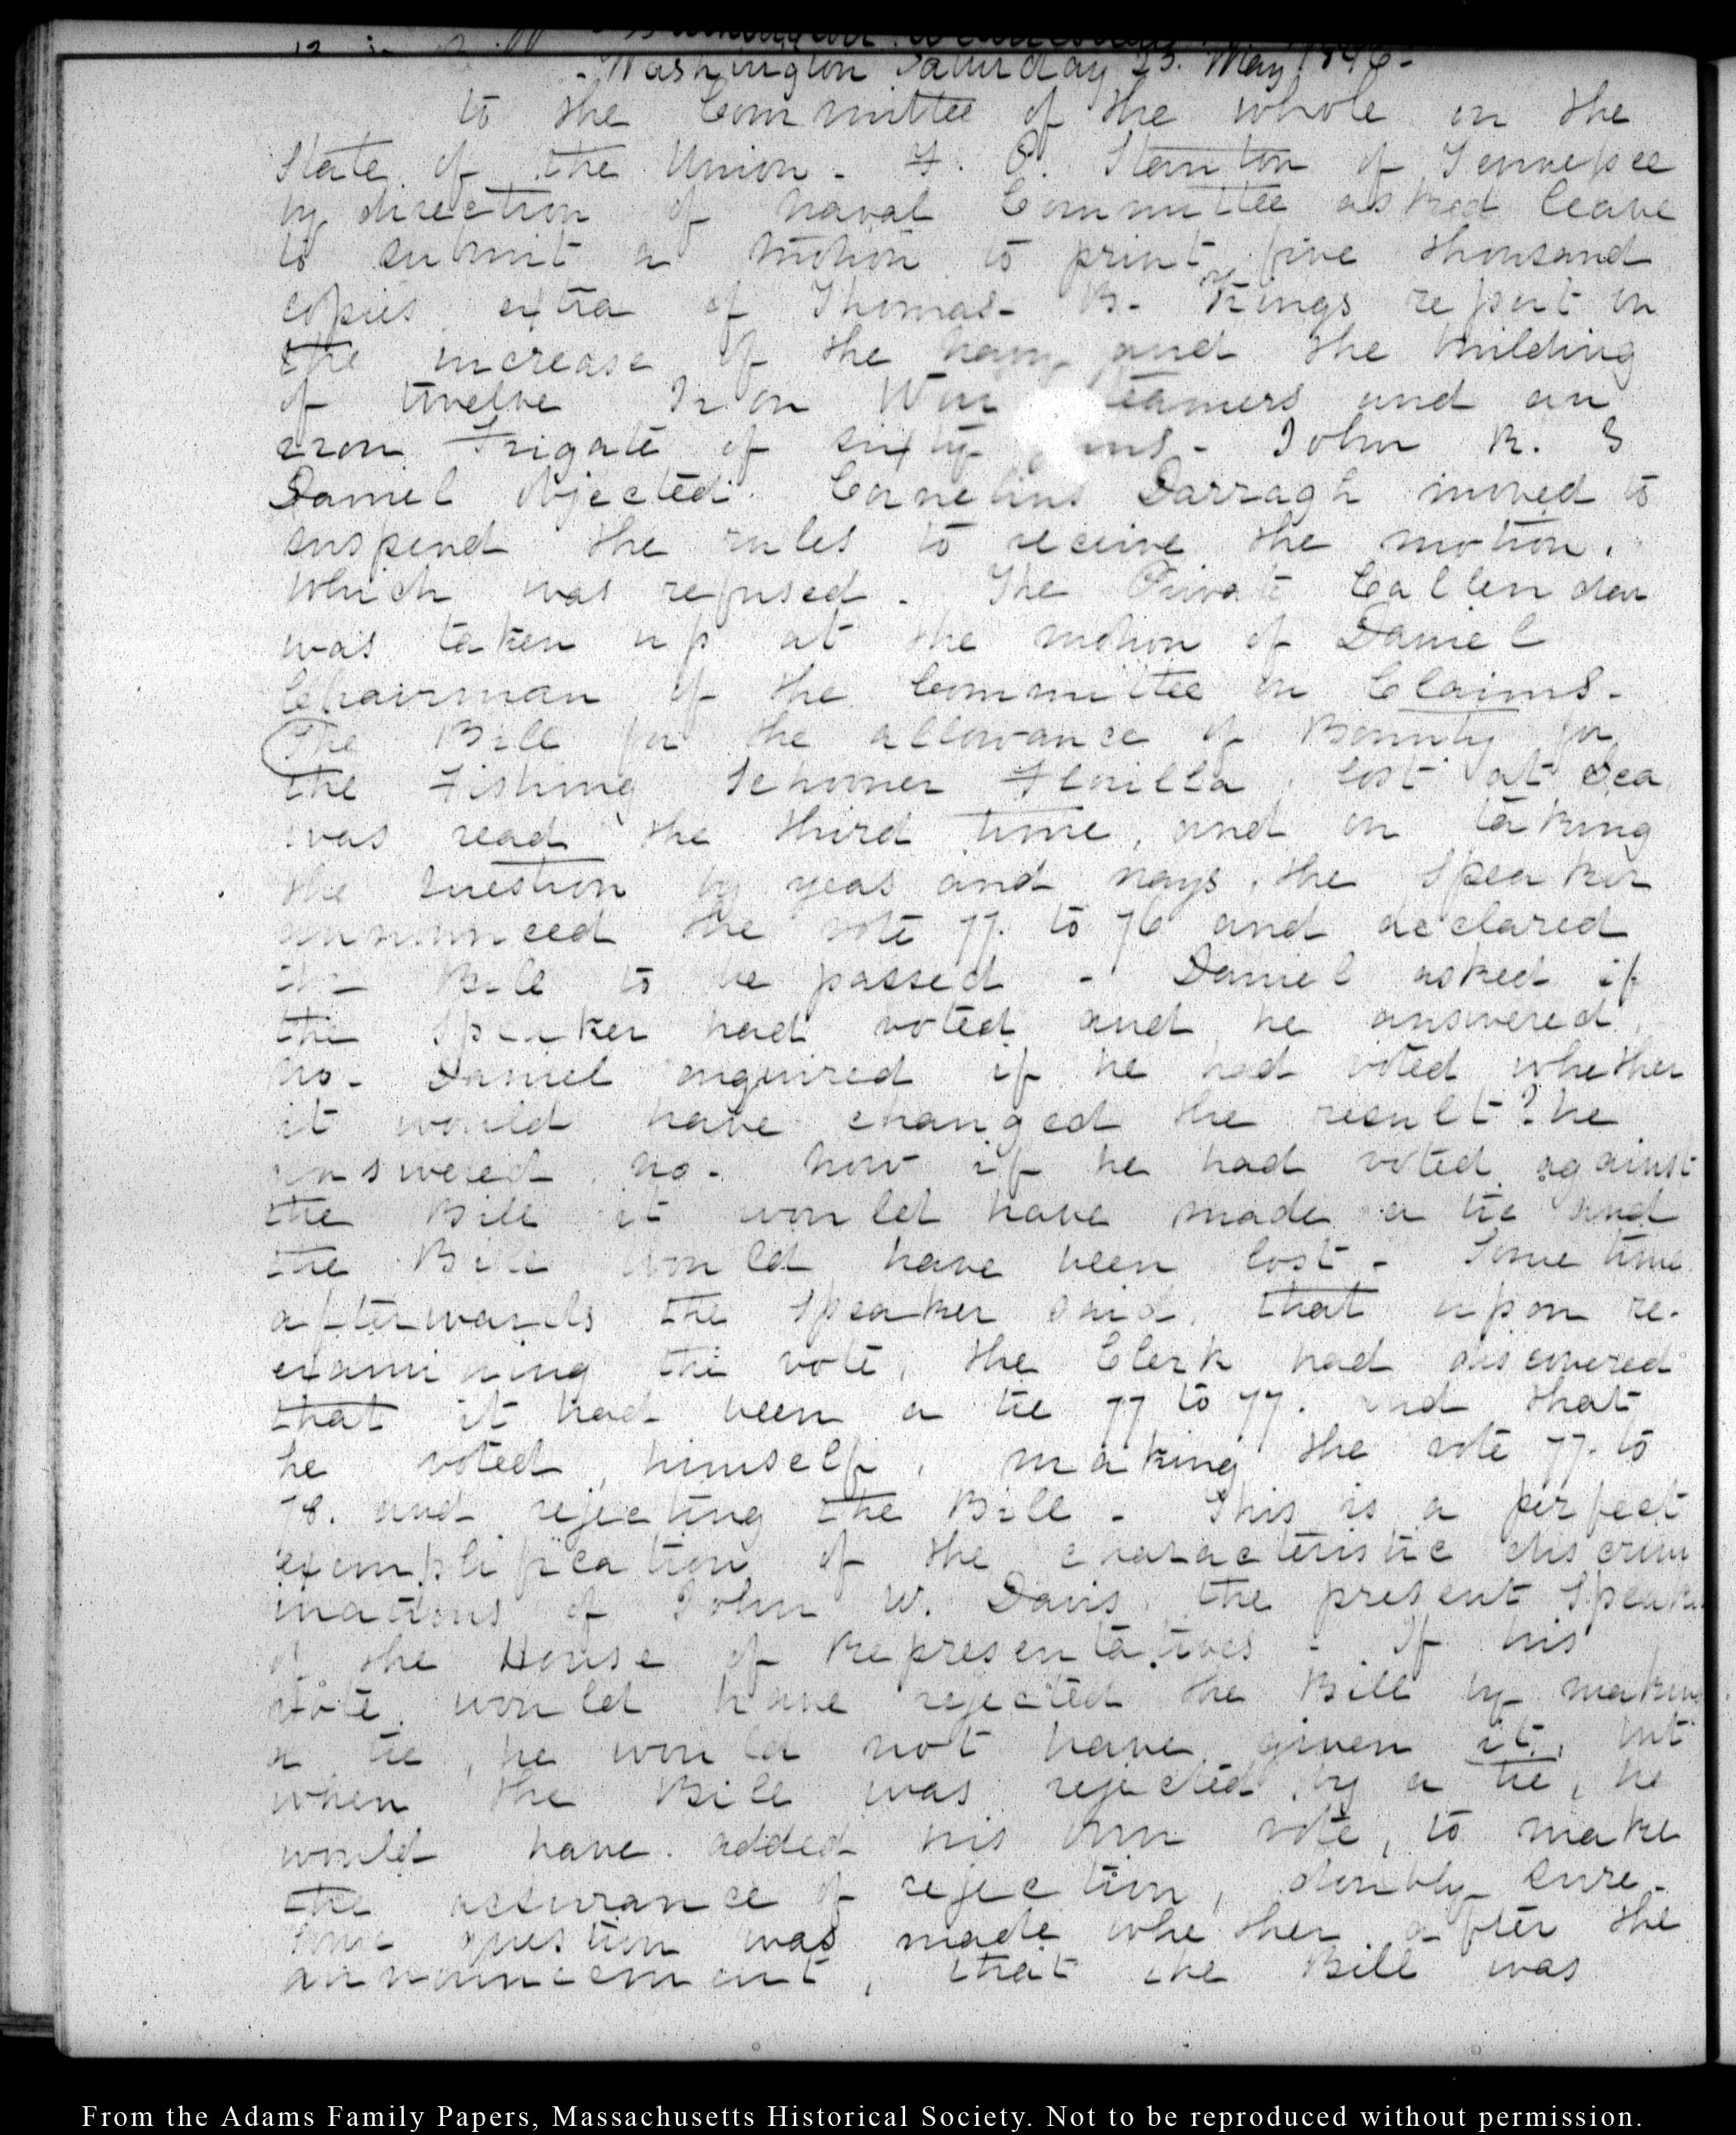 - Washington Saturday 23. May 1846-
to the Committee of the whole on the
State of the Union - F. P. Stanton of Tennessee
by direction of Naval Committee asked leave
to submit a motion to print five thousand
copies extra of Thomas- B. Kings report on
the increase of the Navy and the building
of twelve Iron War Steamers and an
iron Frigate of sixty guns - John R. S
Daniel objected. Cornelius Darragh moved to
suspend the rules to receive the motion.
which was refused. The Private Callendar
was taken up at the motion of Daniel
Chairman of the Committee on Claims.
The Bill for the allowance of Bounty for
the Fishing Schooner Florilla, lost at Sea
was read the third time, and on taking
the question by yeas and nays, the Speaker
announced the vote 77. to 76 and declared
the Bill to be passed - Daniel asked if
the Speaker had voted and he answered
no. Daniel enquired if he had voted whether
it would have changed the result? he
answered no. Now if he had voted against
the Bill it would have made a tie and
the Bill would have been lost - Some time
afterwards the Speaker said, that upon re-
examining the vote, the Clerk had discovered
that it had been a tie 77 to 77. and that
he voted himself, making the vote 77. to
78. and rejecting the Bill - This is a perfect
exemplification of the characteristic discrim
inations of John W. Davis, the present Speaker
of the House of Representatives - If his
vote would have rejected the Bill by making
a tie, he would not have given it, but
when the Bill was rejected by a tie, he
would have added his own vote, to make
the assurance of rejection, doubly sure.
Some question was made whether after the
announcement, that the Bill was
From the Adams Family Papers, Massachusetts Historical Society. Not to be reproduced without permission.